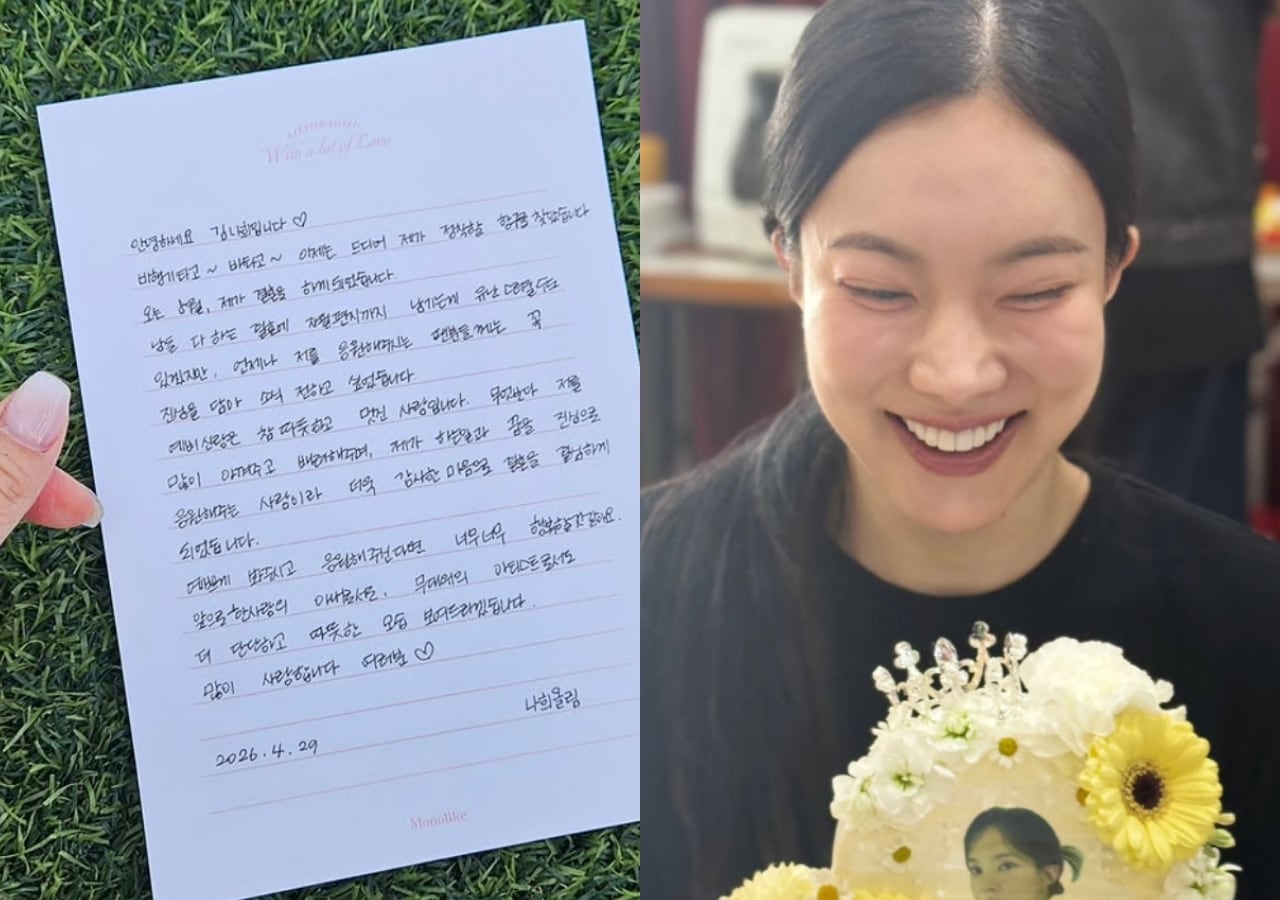 With a lot of Love
안녕하세요 김나희입니다 ♡
비행기타고~ 배타고~ 이제는 드디어 제가 정착할 항구를 찾았습니다
오는 9월, 제가 결혼을 하게 되었습니다.
남들 다 하는 결혼에 자필편지까지 남기는게 유난스러울수도
있겠지만, 언제나 저를 응원해주시는 팬분들께는 꼭
진심을 담아 소식 전하고 싶었습니다
예비신랑은 참 따뜻하고 멋진 사람입니다. 무엇보다 저를
많이 아껴주고 배려해주며, 제가 하는일과 꿈을 진심으로
응원해주는 사람이라 더욱 감사한 마음으로 결혼을 결심하게
되었습니다.
예쁘게 봐주시고 응원해주신다면 너무너무 행복할것같아요.
앞으로 한사람의 아내로서도, 무대위의 아티스트로서도
더 단단하고 따뜻한 모습 보여드리겠습니다.
많이 사랑합니다 여러분 ♡
나희올림
2026. 4. 29
Monolike